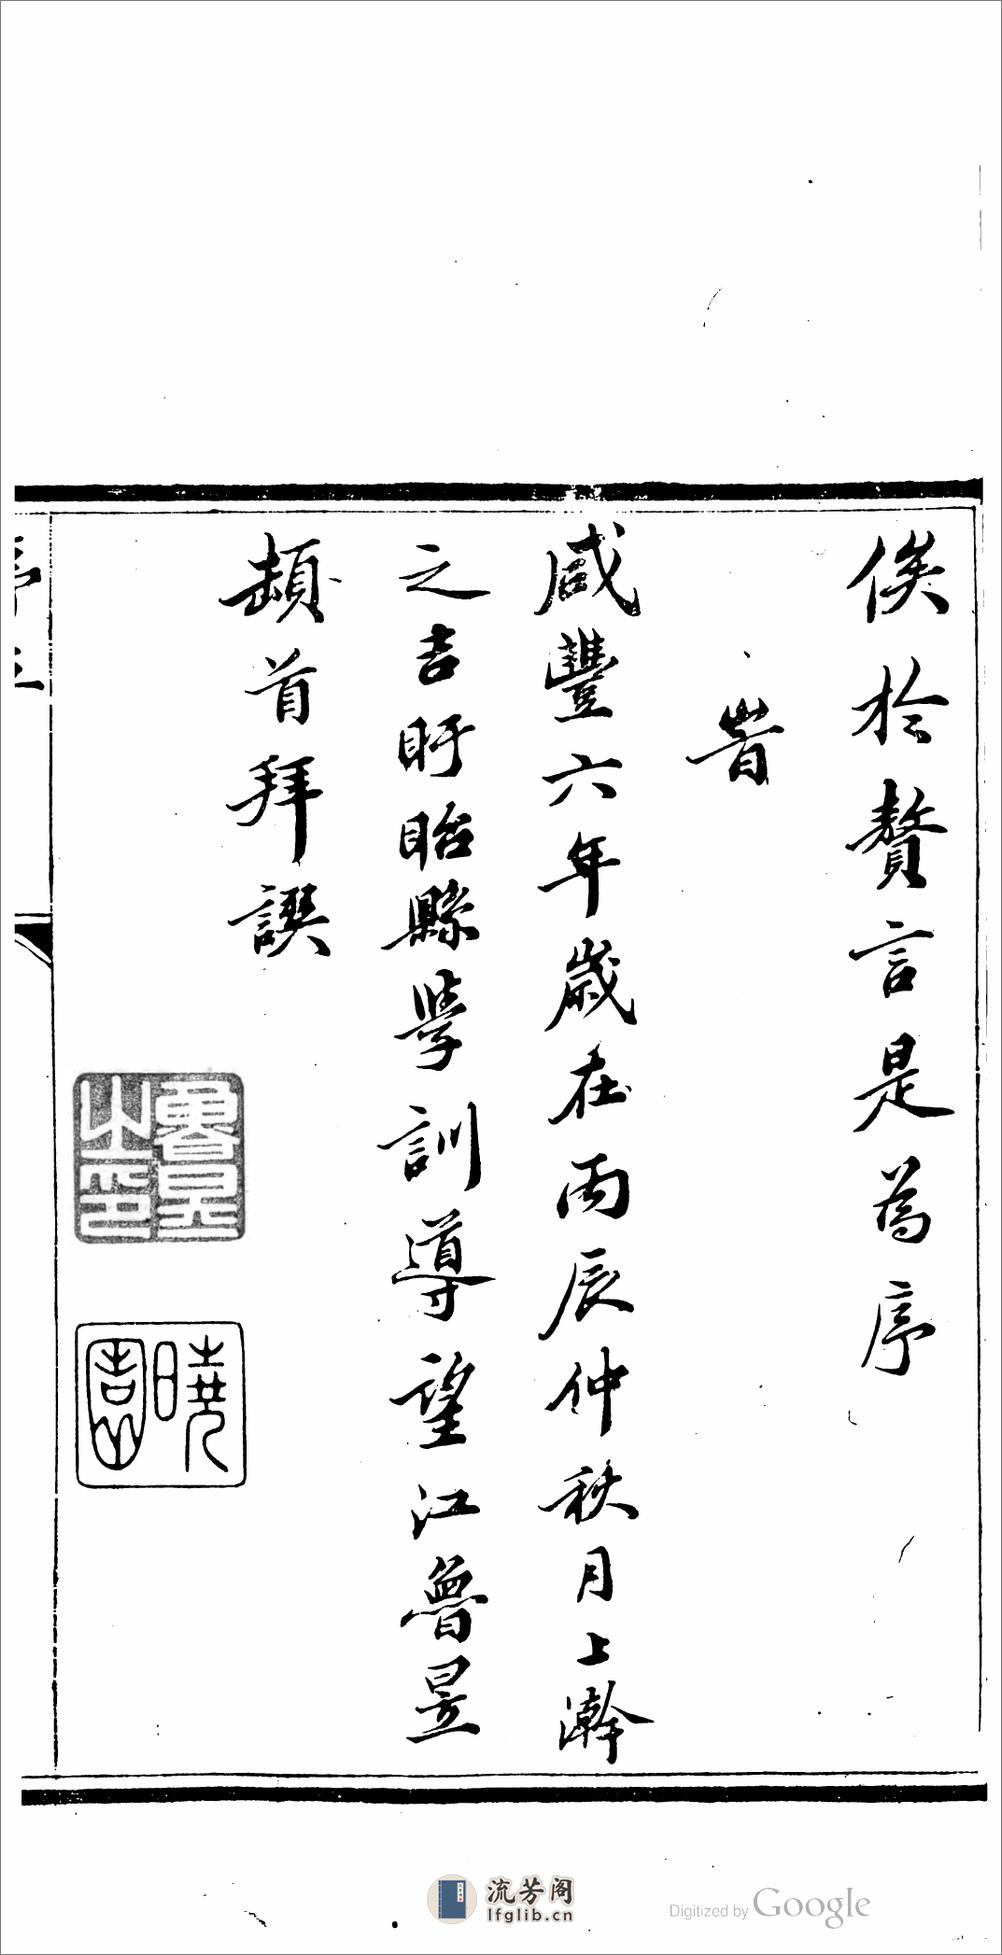 俟於贅言是為序
旹
咸豐六年歲在丙辰仲秋月上澣
之吉盱眙縣學訓導望江魯昱
頓首拜譔
魯昱之印
曉園
序
流芳阁
lfglib.cn
Digitized by Google